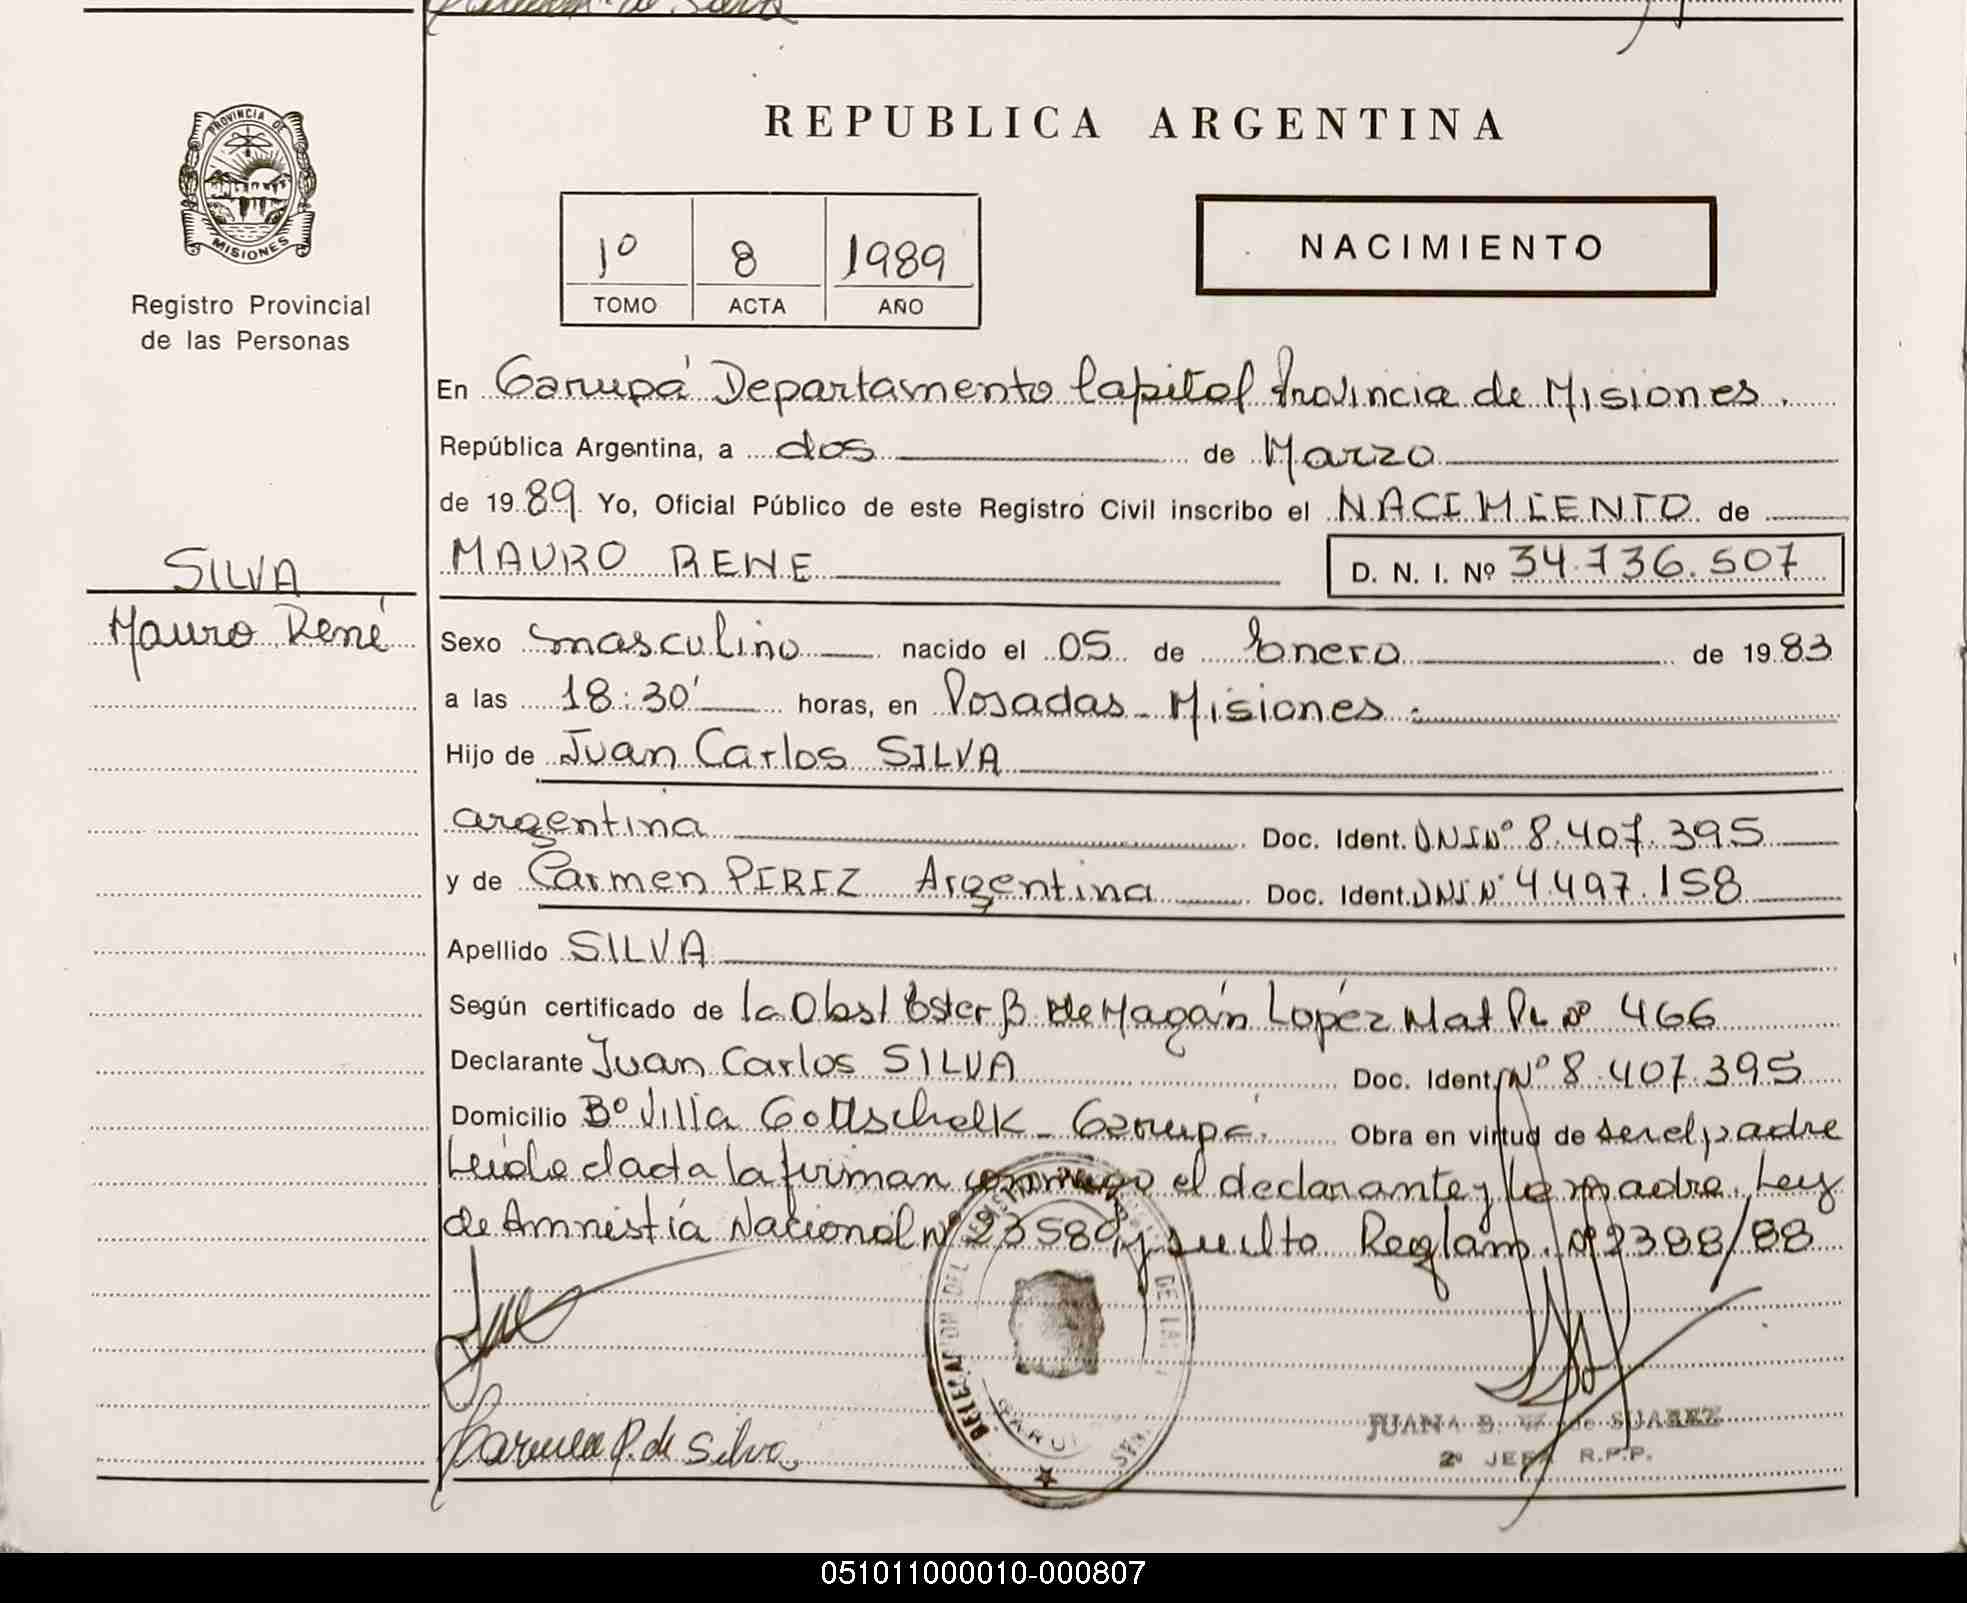 PROVINCIA DE
MISIONES
Registro Provincial
de las Personas
REPUBLICA ARGENTINA
1º 8 1989
TOMO ACTA AÑO
NACIMIENTO
En Garupá Departamento Capital Provincia de Misiones.
República Argentina, a dos de Marzo
de 1989 Yo, Oficial Público de este Registro Civil inscribo el NACIMIENTO de
MAURO RENE D. N. I. Nº 34.736.507
SILVA
Mauro René
Sexo masculino nacido el 05 de Enero de 1983
a las 18:30' horas, en Posadas - Misiones.
Hijo de Juan Carlos SILVA
argentina Doc. Ident. DNI Nº 8.407.395
y de Carmen PEREZ Argentina Doc. Ident. DNI Nº 4.497.158
Apellido SILVA
Según certificado de la Obst Ester B de Magán López Mat Nº 466
Declarante Juan Carlos SILVA Doc. Ident. Nº 8.407.395
Domicilio Bº Villa Gottschalk - Garupá. Obra en virtud de ser el padre
Leída el acta la firman conmigo el declarante y la madre. Ley
de Amnistía Nacional Nº 23589 y su Dto Reglam. Nº 2388/88
Carmen P. de Silva
JUANA B. de SUAREZ
2º JEFA R.P.P.
051011000010-000807